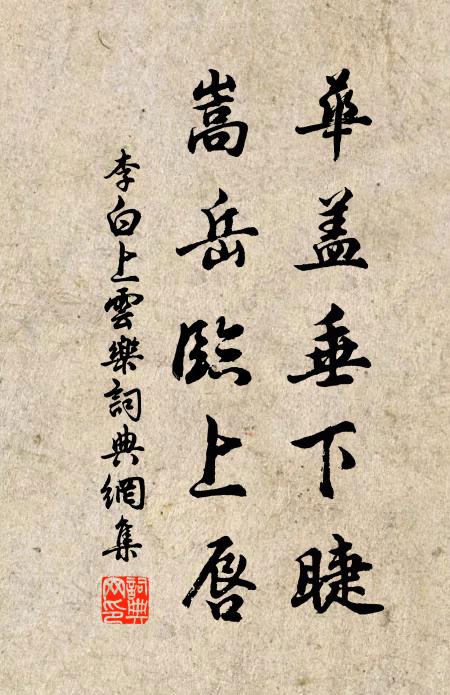 華盖垂下睫
嵩岳臨上唇
李白上雲樂詞典網集
詞典网印